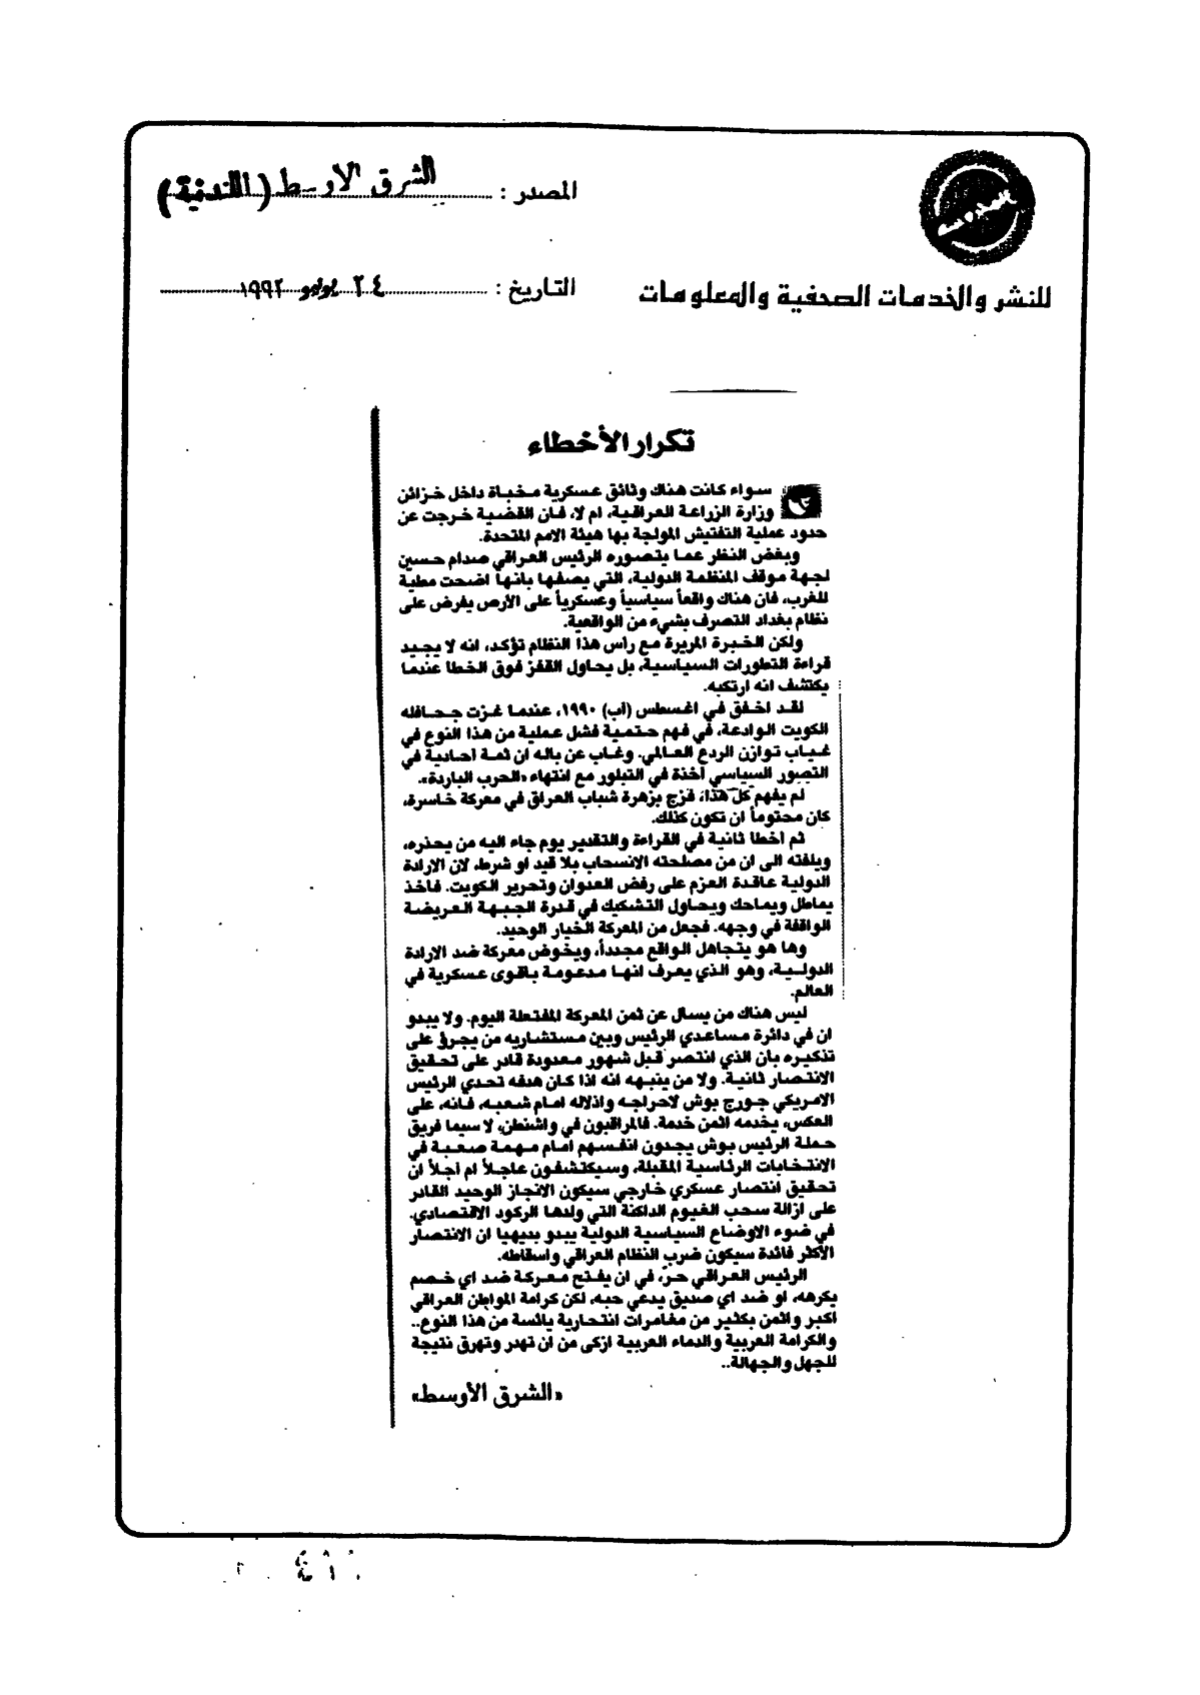 المصدر : الشرق الاوسط (اللندنية)
للنشر والخدمات الصحفية والمعلومات
التاريخ : ٢٤ يوليو ١٩٩٢
تكرار الأخطاء
سواء كانت هناك وثائق عسكرية مخباة داخل خزائن
وزارة الزراعة العراقية، ام لا، فان القضية خرجت عن
حدود عملية التفتيش المولجة بها هيئة الامم المتحدة.
وبغض النظر عما يتصوره الرئيس العراقي صدام حسين
لجهة موقف المنظمة الدولية، التي يصفها بانها اضحت مطية
للغرب، فان هناك واقعاً سياسياً وعسكرياً على الأرض يفرض على
نظام بغداد التصرف بشيء من الواقعية.
ولكن الخبرة المريرة مع رأس هذا النظام تؤكد، انه لا يجيد
قراءة التطورات السياسية، بل يحاول القفز فوق الخطا عندما
يكتشف انه ارتكبه.
لقد اخفق في اغسطس (اب) ١٩٩٠، عندما غزت جحافله
الكويت الوادعة، في فهم حتمية فشل عملية من هذا النوع في
غياب توازن الردع العالمي. وغاب عن باله ان ثمة احادية في
التصور السياسي اخذة في التبلور مع انتهاء «الحرب الباردة».
لم يفهم كل هذا، فزج بزهرة شباب العراق في معركة خاسرة،
كان محتوماً ان تكون كذلك.
ثم اخطا ثانية في القراءة والتقدير يوم جاء اليه من يحذره،
ويلفته الى ان من مصلحته الانسحاب بلا قيد او شرط، لان الارادة
الدولية عاقدة العزم على رفض العدوان وتحرير الكويت. فاخذ
يماطل ويماحك ويحاول التشكيك في قدرة الجبهة العريضة
الواقفة في وجهه. فجعل من المعركة الخيار الوحيد.
وها هو يتجاهل الواقع مجدداً، ويخوض معركة ضد الارادة
الدولية، وهو الذي يعرف انها مدعومة باقوى عسكرية في
العالم.
ليس هناك من يسال عن ثمن المعركة المفتعلة اليوم. ولا يبدو
ان في دائرة مساعدي الرئيس وبين مستشاريه من يجرؤ على
تذكيره بان الذي انتصر قبل شهور معدودة قادر على تحقيق
الانتصار ثانية. ولا من ينبهه انه اذا كان هدفه تحدي الرئيس
الامريكي جورج بوش لاحراجه واذلاله امام شعبه، فانه، على
العكس، يخدمه اثمن خدمة. فالمراقبون في واشنطن، لا سيما فريق
حملة الرئيس بوش يجدون انفسهم امام مهمة صعبة في
الانتخابات الرئاسية المقبلة، وسيكتشفون عاجلاً ام اجلاً ان
تحقيق انتصار عسكري خارجي سيكون الانجاز الوحيد القادر
على ازالة سحب الغيوم الداكنة التي ولدها الركود الاقتصادي.
في ضوء الاوضاع السياسية الدولية يبدو بديهيا ان الانتصار
الأكثر فائدة سيكون ضرب النظام العراقي واسقاطه.
الرئيس العراقي حرّ، في ان يفتح معركة ضد اي خصم
يكرهه، او ضد اي صديق يدعي حبه، لكن كرامة المواطن العراقي
اكبر واثمن بكثير من مغامرات انتحارية يائسة من هذا النوع..
والكرامة العربية والدماء العربية ازكى من ان تهدر وتهرق نتيجة
للجهل والجهالة..
«الشرق الأوسط»